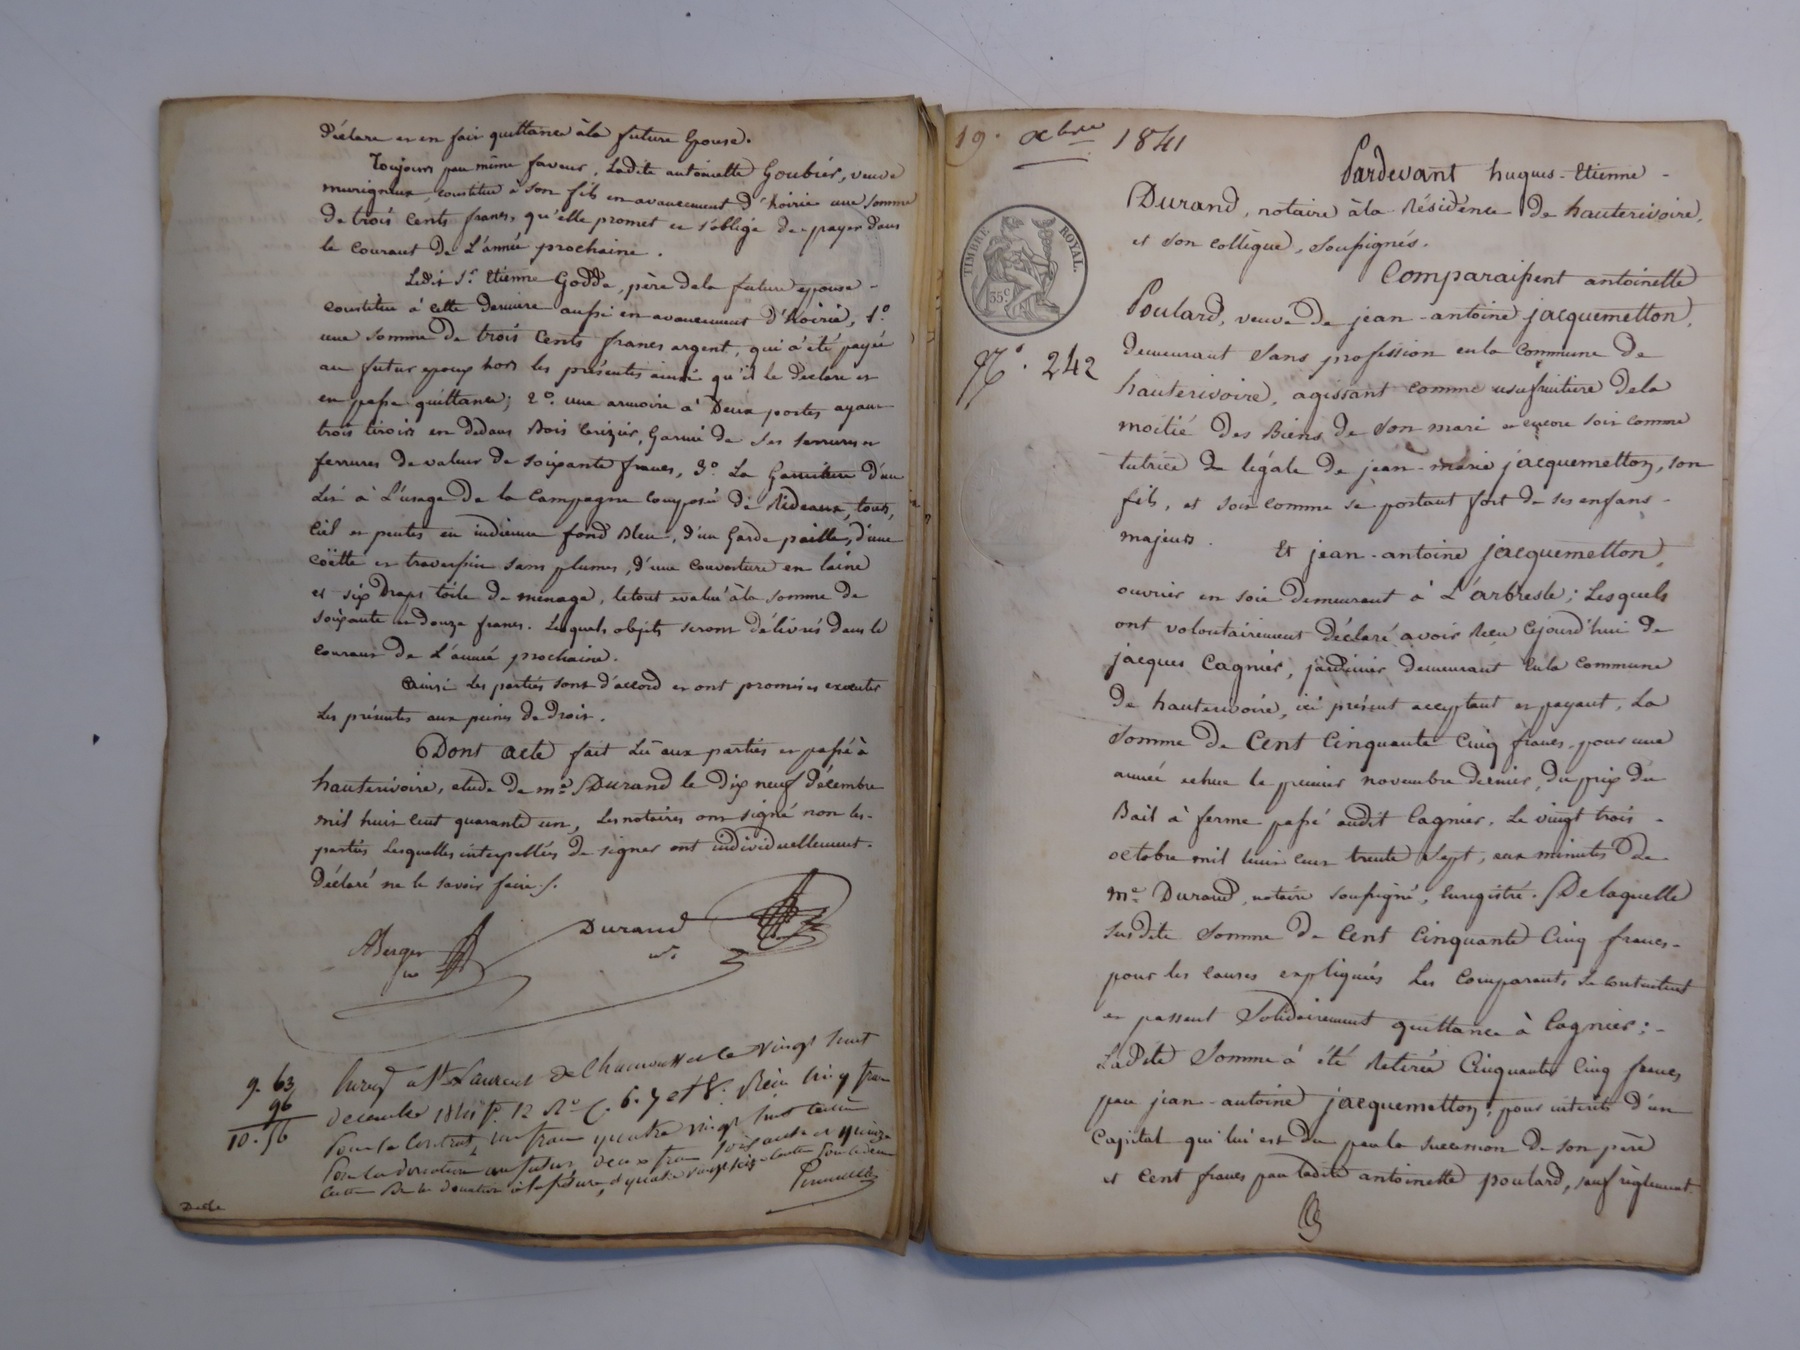 déclare et en fait quittance à la future Epouse.
Toujours par même faveur, Ladite antoinette Goubier, veuve
murigneux, constitue à son fils en avancement d'hoirie une somme
de trois cents francs, qu'elle promet et s'oblige de payer dans
le courant de L'année prochaine.
Ledit Sr. Etienne Godde, père de la future epouse
constitue à cette dernière aussi en avancement d'hoirie, 1°.
une somme de trois Cents francs argent, qui a été payée
au futur epoux hors les présentes ainsi qu'il le déclare et
en passe quittance; 2°. une armoire à Deux portes ayant
trois tiroirs en dedans Bois Cerizier, Garnie de ses serrures et
ferrures de valeur de soixante francs, 3°. La Garniture d'un
Lit à L'usage de la Campagne composée de Rideaux, tours,
Ciel et pentes en indienne fond Bleu, d'un Garde paille, d'une
coëtte et traversin sans plumes, d'une couverture en laine
et six Draps toile de menage, le tout evalué à la somme de
soixante et douze francs. Lesquels objets seront délivrés dans le
courant de L'année prochaine.
ainsi Les parties sont d'accord et ont promis et executer
Les présentes aux peines de Droit.
Dont acte fait Lu aux parties et passé à
hauterivoire, etude de me. Durand le Dix neuf décembre
mil huit cent quarante un, Les notaires ont signé non les-
parties Lesquelles interpellées de signer ont individuellement.
Déclaré ne le savoir faire ./.
Berger Durand
no nre
9. 63
96
10. 56
Enregé a St Laurent de Chamousset le vingt huit
decembre 1841 fo. 12 Ro C. 6. 7 et 8. Reçu cinq francs
pour le Contrat, un franc quatre vingt huit centimes
pour la donation au futur, deux francs soixante et quinze
centimes de la donation à la future, et quatre vingt seize centimes pour le decime
Dècle
19. Xbre 1841
Pardevant hugues-Etienne -
Durand, notaire à la Résidence de hauterivoire,
et son collègue, soussignés.
Comparaissent antoinette
Poulard, veuve de jean-antoine jacquemetton,
demeurant sans profession en la Commune de
hauterivoire, agissant comme usufruitière de la
moitié des Biens de son mari et encore soit comme
tutrice légale de jean-marie jacquemetton, son
fils, et soit comme se portant fort de ses enfans-
majeurs. Et jean-antoine jacquemetton,
ouvrier en soie demeurant à L'arbresle; Lesquels
ont volontairement déclaré avoir Reçu Cejourd'hui de
jacques Cagnier, jardinier demeurant en la Commune
de hauterivoire, ici présent acceptant et payant, La
somme de Cent Cinquante Cinq francs, pour une
année echue le premier novembre dernier, du prix du
Bail à ferme passé audit Cagnier, Le vingt trois -
octobre mil huit cent trente sept, aux minutes de
me. Durand, notaire soussigné, Enregistré. De laquelle
susdite somme de Cent Cinquante Cinq francs-
pour les causes expliquées Les Comparants se contentent
et passent solidairement quittance à Cagnier; -
Ladite somme a été Retirée Cinquante Cinq francs
par jean-antoine jacquemetton, pour intérêts d'un
Capital qui lui est du par la succession de son père
et Cent francs par ladite antoinette poulard, sauf règlement.
TIMBRE ROYAL.
35c
No. 242